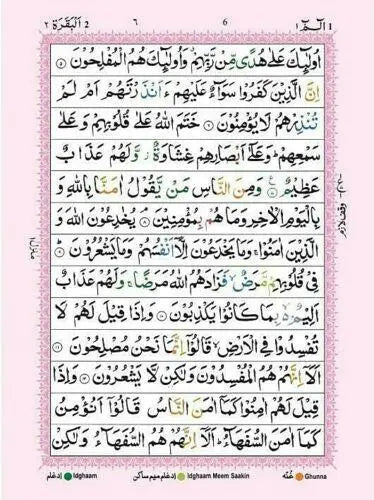 البقرة ٢ 2 ٦ 6 الٓمّٓ ١ 1
اُولٰٓئِكَ عَلٰى هُدًى مِّنْ رَّبِّهِمْ وَاُولٰٓئِكَ هُمُ الْمُفْلِحُوْنَ ۝۵
اِنَّ الَّذِيْنَ كَفَرُوْا سَوَآءٌ عَلَيْهِمْ ءَاَنْذَرْتَهُمْ اَمْ لَمْ
تُنْذِرْهُمْ لَا يُؤْمِنُوْنَ ۝۶ خَتَمَ اللّٰهُ عَلٰى قُلُوْبِهِمْ وَعَلٰى
سَمْعِهِمْ ؕ وَعَلٰٓى اَبْصَارِهِمْ غِشَاوَةٌ ؗ وَّلَهُمْ عَذَابٌ
عَظِيْمٌ ۝۷ وَمِنَ النَّاسِ مَنْ يَّقُوْلُ اٰمَنَّا بِاللّٰهِ وَ
بِالْيَوْمِ الْاٰخِرِ وَمَا هُمْ بِمُؤْمِنِيْنَ ۝۸ يُخٰدِعُوْنَ اللّٰهَ وَ
الَّذِيْنَ اٰمَنُوْا ۚ وَمَا يَخْدَعُوْنَ اِلَّاۤ اَنْفُسَهُمْ وَمَا يَشْعُرُوْنَ ۝۹
فِيْ قُلُوْبِهِمْ مَّرَضٌ ۙ فَزَادَهُمُ اللّٰهُ مَرَضًا ۚ وَلَهُمْ عَذَابٌ
اَلِيْمٌۢ ۙ۬ بِمَا كَانُوْا يَكْذِبُوْنَ ۝۱۰ وَاِذَا قِيْلَ لَهُمْ لَا
تُفْسِدُوْا فِي الْاَرْضِ ۙ قَالُوْۤا اِنَّمَا نَحْنُ مُصْلِحُوْنَ ۝۱۱
اَلَاۤ اِنَّهُمْ هُمُ الْمُفْسِدُوْنَ وَلٰكِنْ لَّا يَشْعُرُوْنَ ۝۱۲ وَاِذَا
قِيْلَ لَهُمْ اٰمِنُوْا كَمَاۤ اٰمَنَ النَّاسُ قَالُوْۤا اَنُؤْمِنُ
كَمَاۤ اٰمَنَ السُّفَهَآءُ ؕ اَلَاۤ اِنَّهُمْ هُمُ السُّفَهَآءُ وَلٰكِنْ
وقف لازم
ادغام Idghaam ادغام میم ساکن Idghaam Meem Saakin غُنّه Ghunna